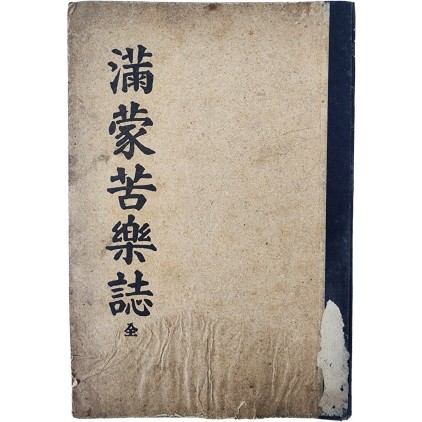 滿蒙苦樂誌全